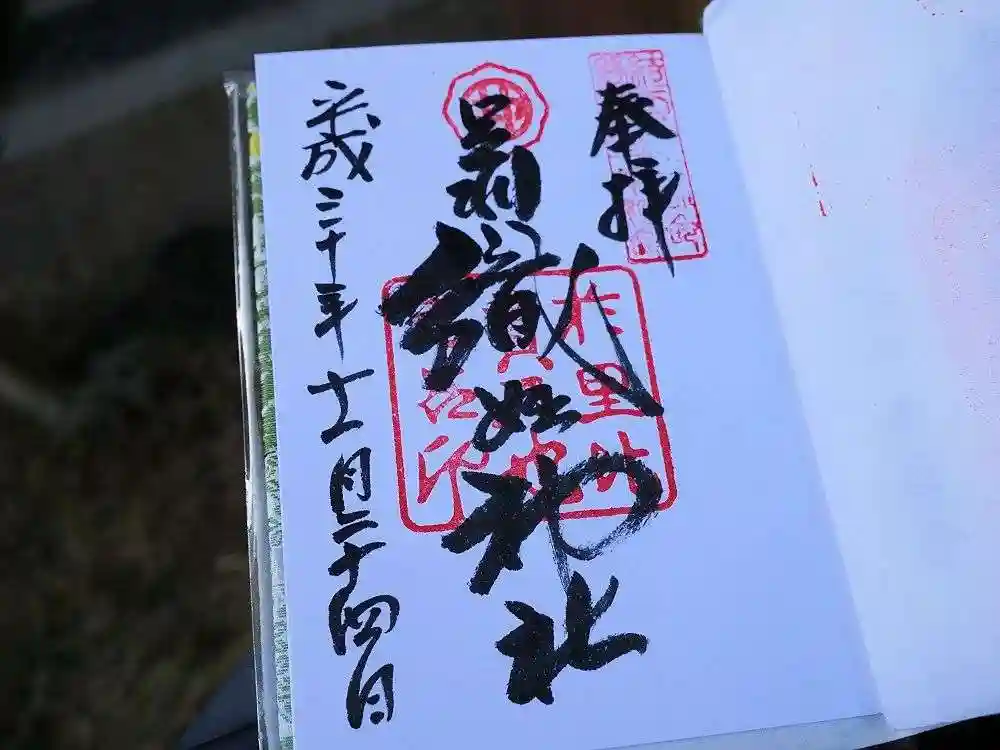 奉拝
足利織姫神社
平成三十年十一月二十四日